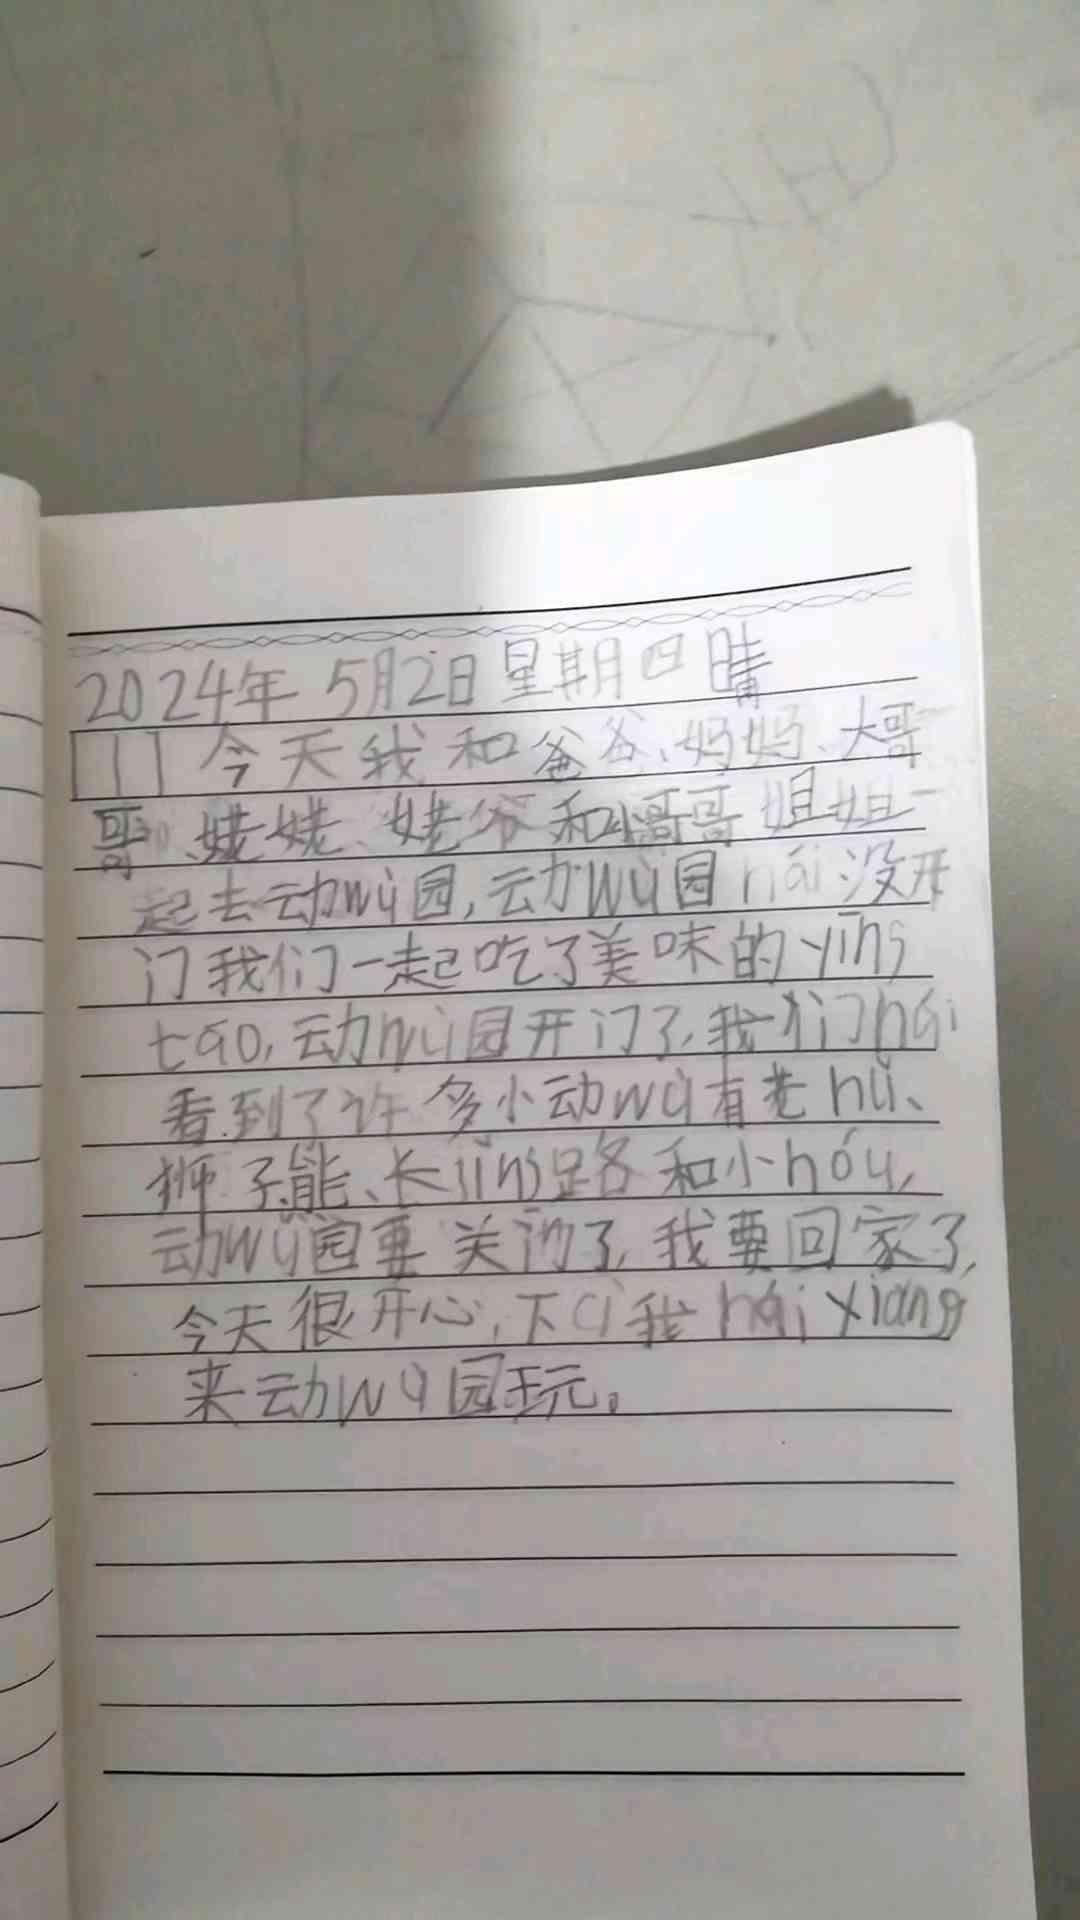 2024年 5月2日 星期四 晴
今天我和爸爸、妈妈、大哥
哥、姥姥、姥爷和小哥哥姐姐一
起去动wù园,动wù园hái没开
门我们一起吃了美味的yīng
táo,动wù园开门了,我们hái
看到了许多小动wù有老hǔ、
狮子、熊、长jǐng路和小hóu,
动wù园要关门了,我要回家了,
今天很开心,下cì我hái xiǎng
来动wù园玩。